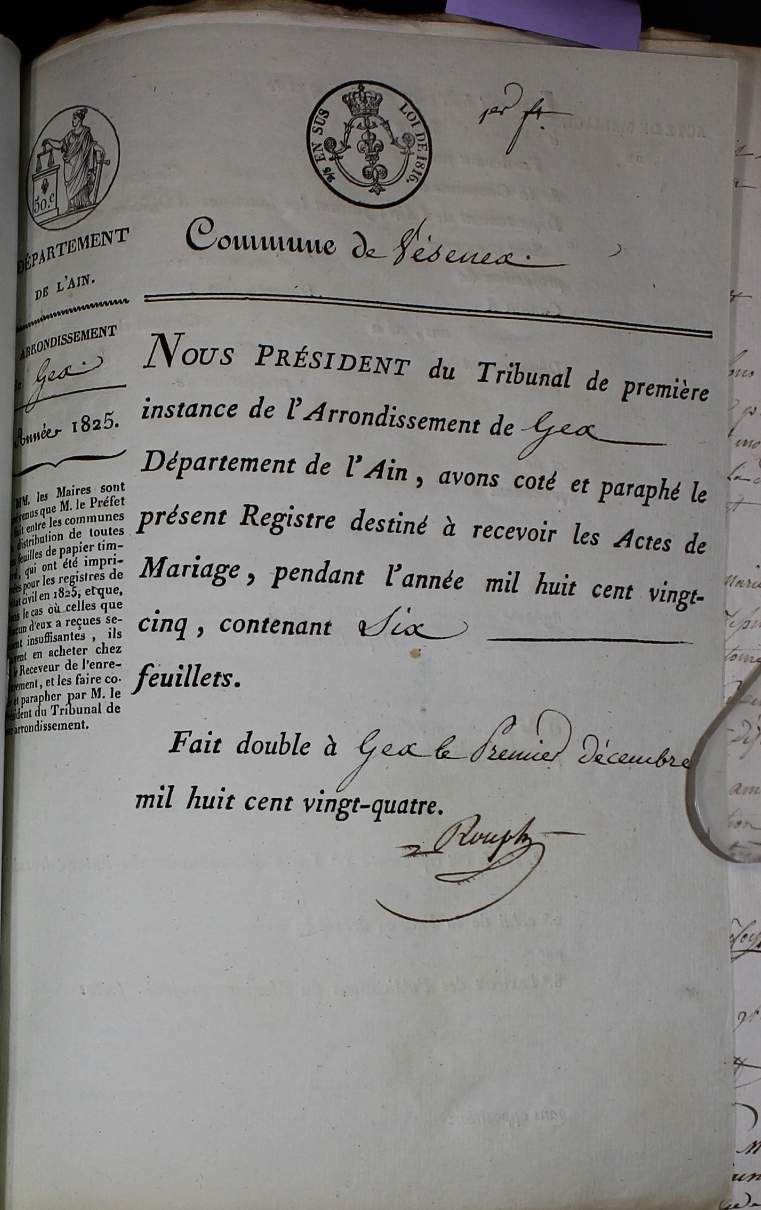 1er ft.
2/6 EN SUS LOI DE 1816.
50.c
DÉPARTEMENT
DE L'AIN.
ARRONDISSEMENT
Gex
Année 1825.
MM. les Maires sont
que M. le Préfet
entre les communes
distribution de toutes
feuilles de papier tim-
qui ont été impri-
pour les registres de
civil en 1825, et que,
le cas où celles que
d'eux a reçues se-
insuffisantes, ils
en acheter chez
Receveur de l'enre-
et les faire co-
et parapher par M. le
du Tribunal de
arrondissement.
Commune de Vésenex.
NOUS PRÉSIDENT du Tribunal de première
instance de l'Arrondissement de Gex
Département de l'Ain, avons coté et paraphé le
présent Registre destiné à recevoir les Actes de
Mariage, pendant l'année mil huit cent vingt-
cinq, contenant Six
feuillets.
Fait double à Gex le Premier Décembre
mil huit cent vingt-quatre.